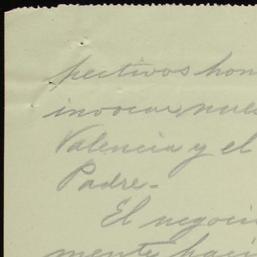 pectivos hon
invocar, nues
Valencia y el
Padre.-
El negoci
mente haci